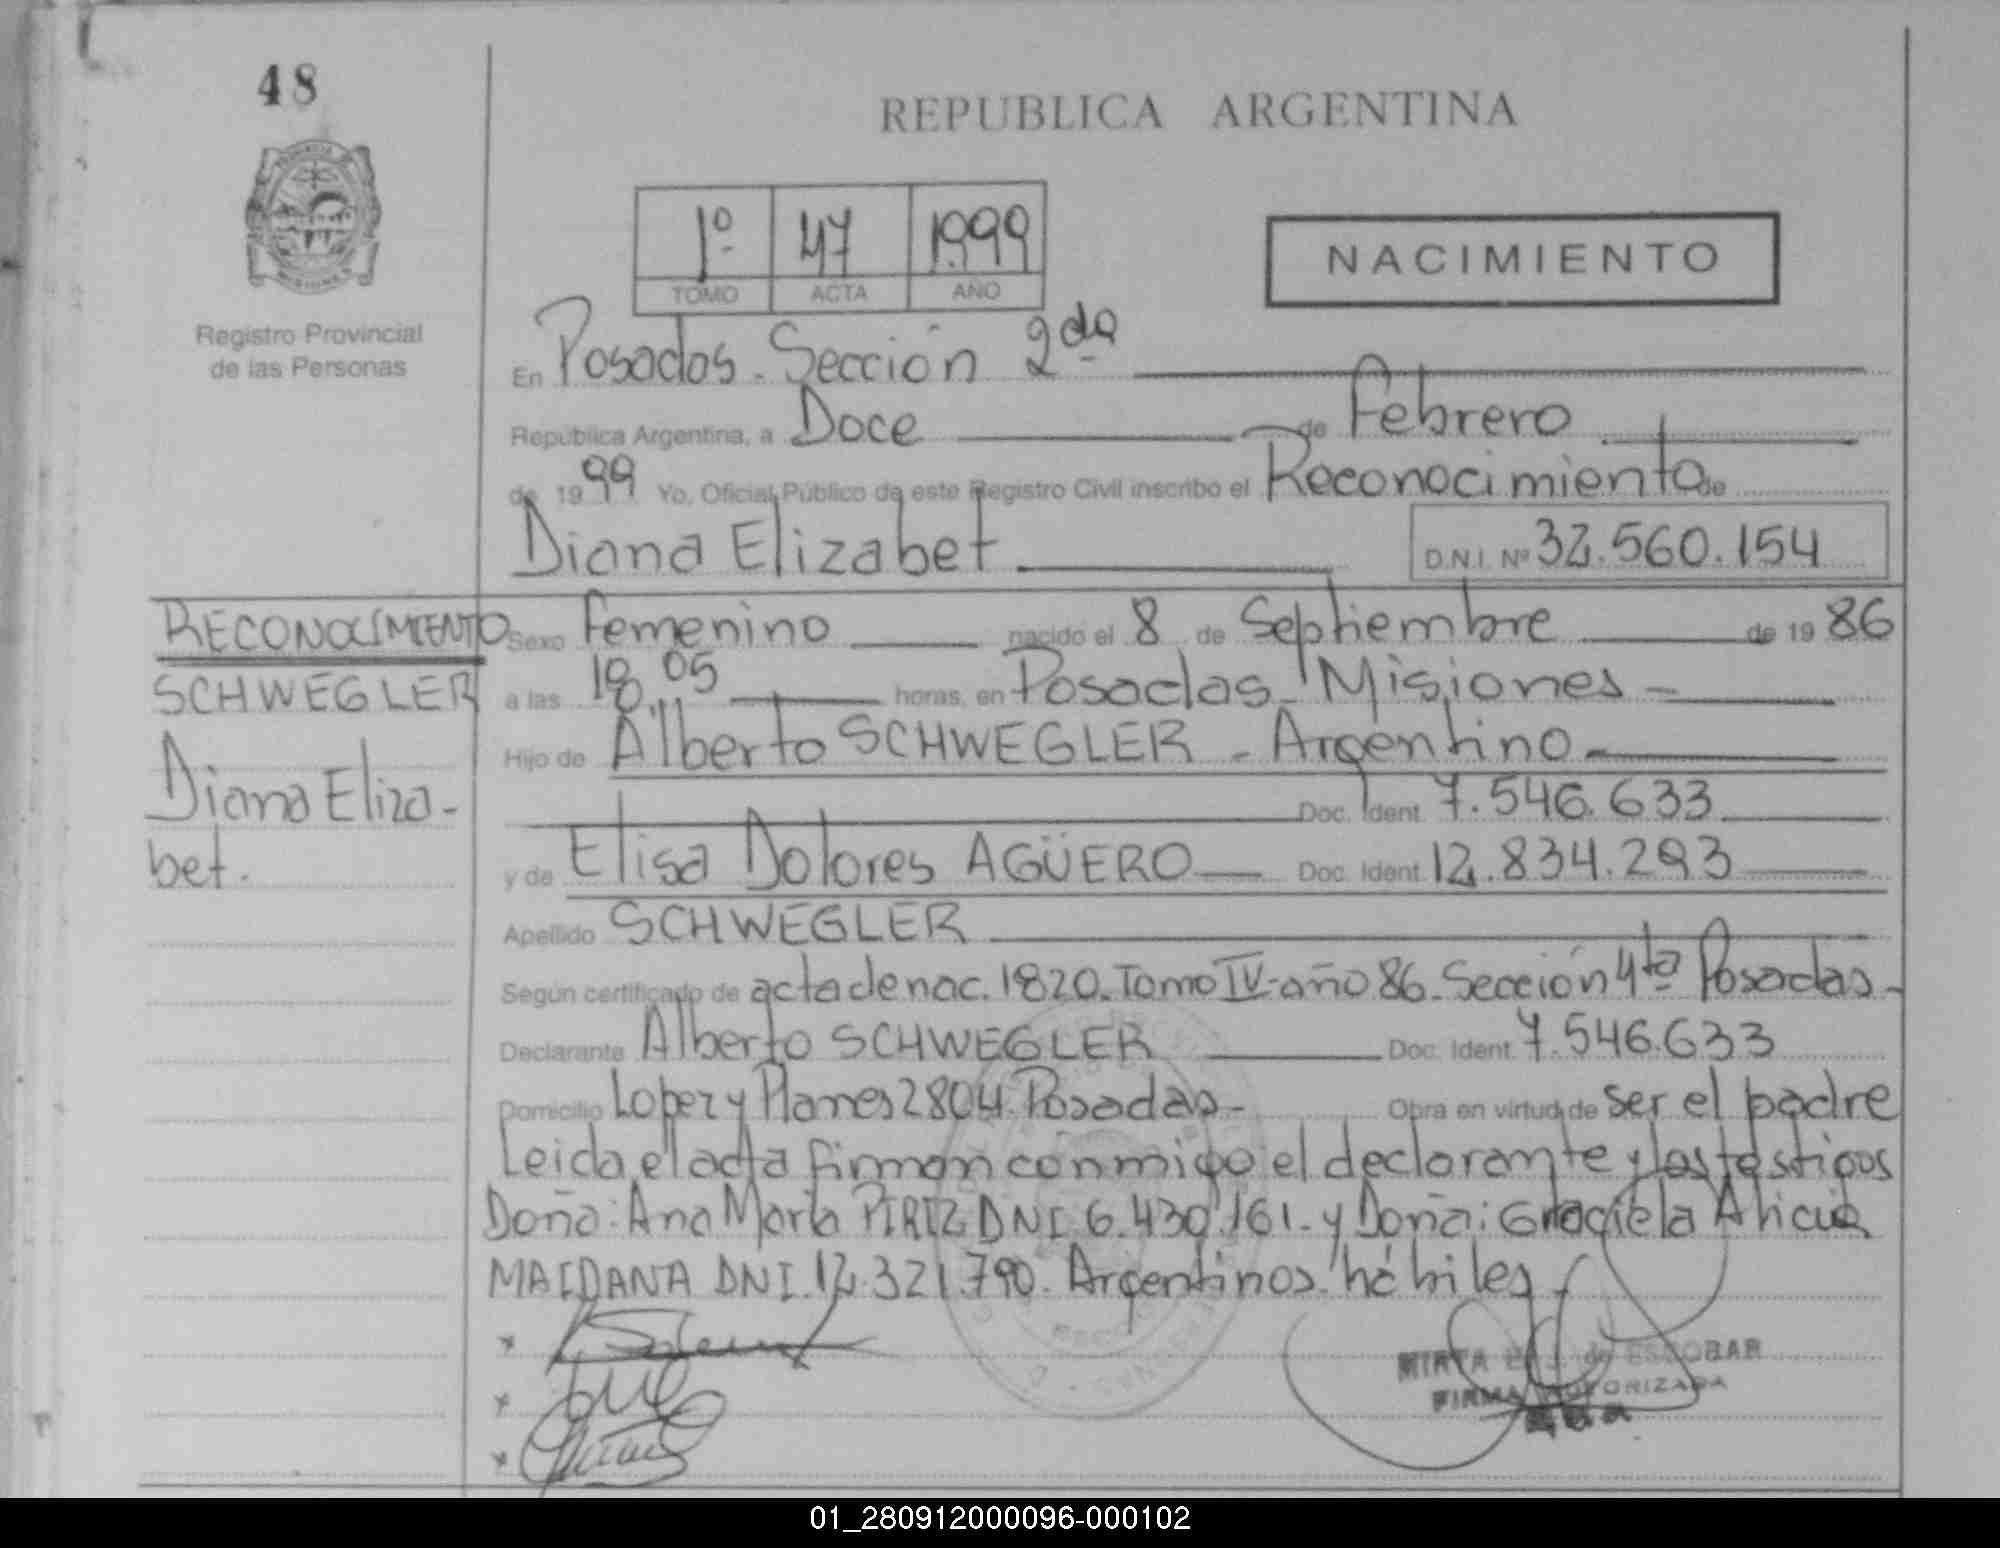 48
REPUBLICA ARGENTINA
1º 47 1999
TOMO ACTA AÑO
NACIMIENTO
Registro Provincial
de las Personas
En Posadas - Sección 2da
República Argentina, a Doce de Febrero
de 1999 Yo, Oficial Público de este Registro Civil inscribo el Reconocimiento de
Diana Elizabet D.N.I. Nº 32.560.154
RECONOCIMIENTO
SCHWEGLER
Diana Eliza-
bet.
Sexo Femenino nacido el 8 de Septiembre de 1986
a las 18,05 horas, en Posadas - Misiones -
Hijo de Alberto SCHWEGLER - Argentino -
Doc. Ident. 7.546.633
y de Elisa Dolores AGÜERO Doc. Ident. 12.834.293
Apellido SCHWEGLER
Según certificado de acta de nac. 1820. Tomo IV - año 86. Sección 4ta Posadas -
Declarante Alberto SCHWEGLER Doc. Ident. 7.546.633
Domicilio Lopez y Planes 2804. Posadas - Obra en virtud de ser el padre
Leida el acta firman conmigo el declarante y los testigos
Doña: Ana María PIRIZ DNI. 6.430.161 - y Doña: Graciela Alicia
MAIDANA DNI. 12.321.790. Argentinos hábiles
MIRTA de ESCOBAR
FIRMA AUTORIZADA
01_280912000096-000102